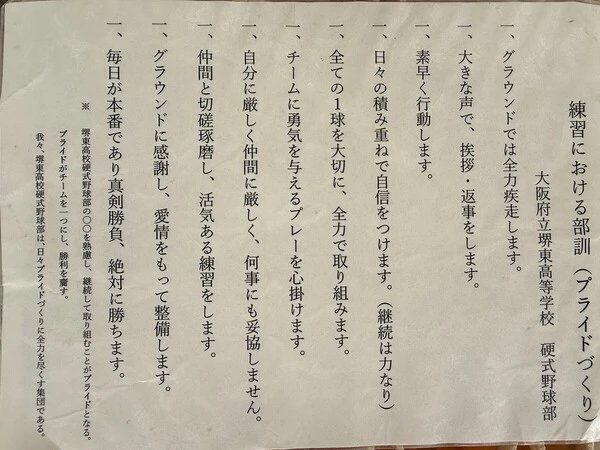 練習における部訓（プライドづくり）
大阪府立堺東高等学校　硬式野球部
一、グラウンドでは全力疾走します。
一、大きな声で、挨拶・返事をします。
一、素早く行動します。
一、日々の積み重ねで自信をつけます。（継続は力なり）
一、全ての１球を大切に、全力で取り組みます。
一、チームに勇気を与えるプレーを心掛けます。
一、自分に厳しく仲間に厳しく、何事にも妥協しません。
一、仲間と切磋琢磨し、活気ある練習をします。
一、グラウンドに感謝し、愛情をもって整備します。
一、毎日が本番であり真剣勝負、絶対に勝ちます。
※　堺東高校硬式野球部の〇〇を熟慮し、継続して取り組むことがプライドとなる。
プライドがチームを一つにし、勝利を齎す。
我々、堺東高校硬式野球部は、日々プライドづくりに全力を尽くす集団である。